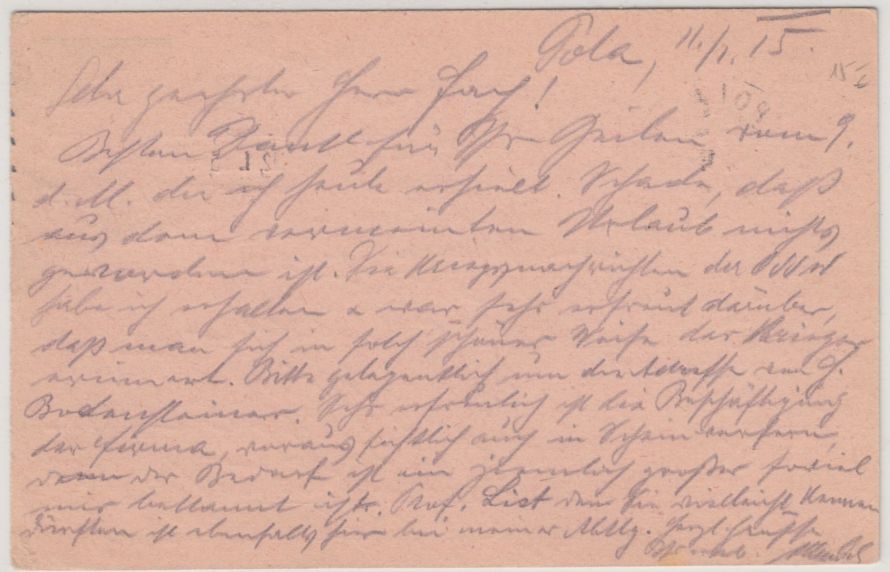 Pola, 11./7. 15.
15/6
Sehr geehrter Herr Fach!
Besten Dank für Ihre Zeilen vom 9.
d. M. die ich heute erhielt. Schade, daß
aus dem vermeinten Urlaub nichts
geworden ist. Die Kriegsnachrichten der
habe ich erhalten & war sehr erfreut darüber,
daß man sich in solch schöner Weise der Krieger
erinnert. Bitte gelegentlich um die Adresse von H.
Bodensteiner. Sehr erfreulich ist die Beschäftigung
der Firma, voraussichtlich auch in Scheinwerfern,
denn der Bedarf ist ein ziemlich großer soviel
mir bekannt ist. Prof. List den Sie vielleicht kennen
dürften ist ebenfalls hier bei meiner Abtlg. Herzl. Grüße